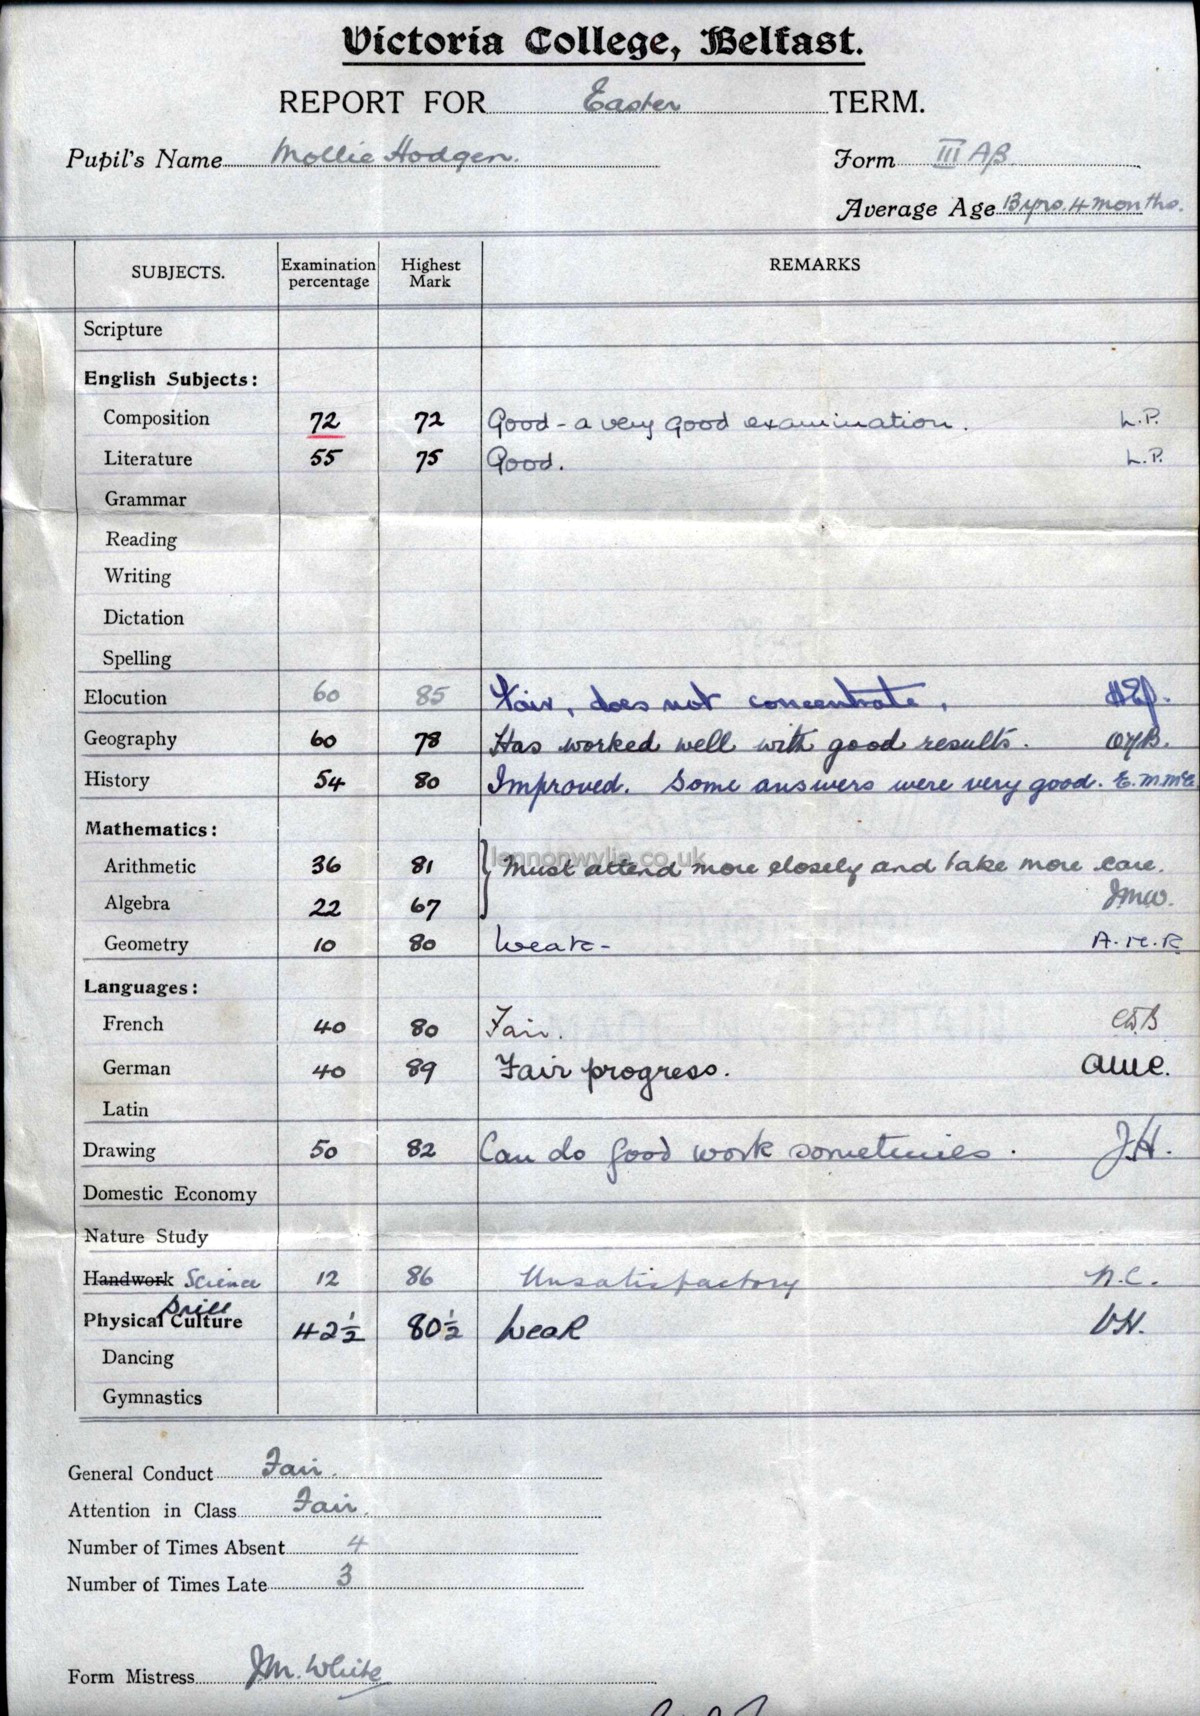 Victoria College, Belfast.
REPORT FOR Easter TERM.
Pupil's Name Mollie Hodgen. Form III Aβ
Average Age 13 yrs. 4 months.
SUBJECTS. Examination percentage Highest Mark REMARKS
Scripture
English Subjects:
Composition 72 72 Good - a very good examination. L.P.
Literature 55 75 Good. L.P.
Grammar
Reading
Writing
Dictation
Spelling
Elocution 60 85 Fair, does not concentrate.
Geography 60 78 Has worked well with good results.
History 54 80 Improved. Some answers were very good. E.M.McE
Mathematics:
lennonwylie.co.uk
Arithmetic 36 81 Must attend more closely and take more care.
Algebra 22 67 JMW.
Geometry 10 80 Weak - A.M.R
Languages:
French 40 80 Fair.
German 40 89 Fair progress.
Latin
Drawing 50 82 Can do good work sometimes. J.H.
Domestic Economy
Nature Study
Handwork Science 12 86 Unsatisfactory N.C.
Physical Culture Drill 42½ 80½ Weak V.H.
Dancing
Gymnastics
General Conduct Fair.
Attention in Class Fair.
Number of Times Absent 4
Number of Times Late 3
Form Mistress J.M. White